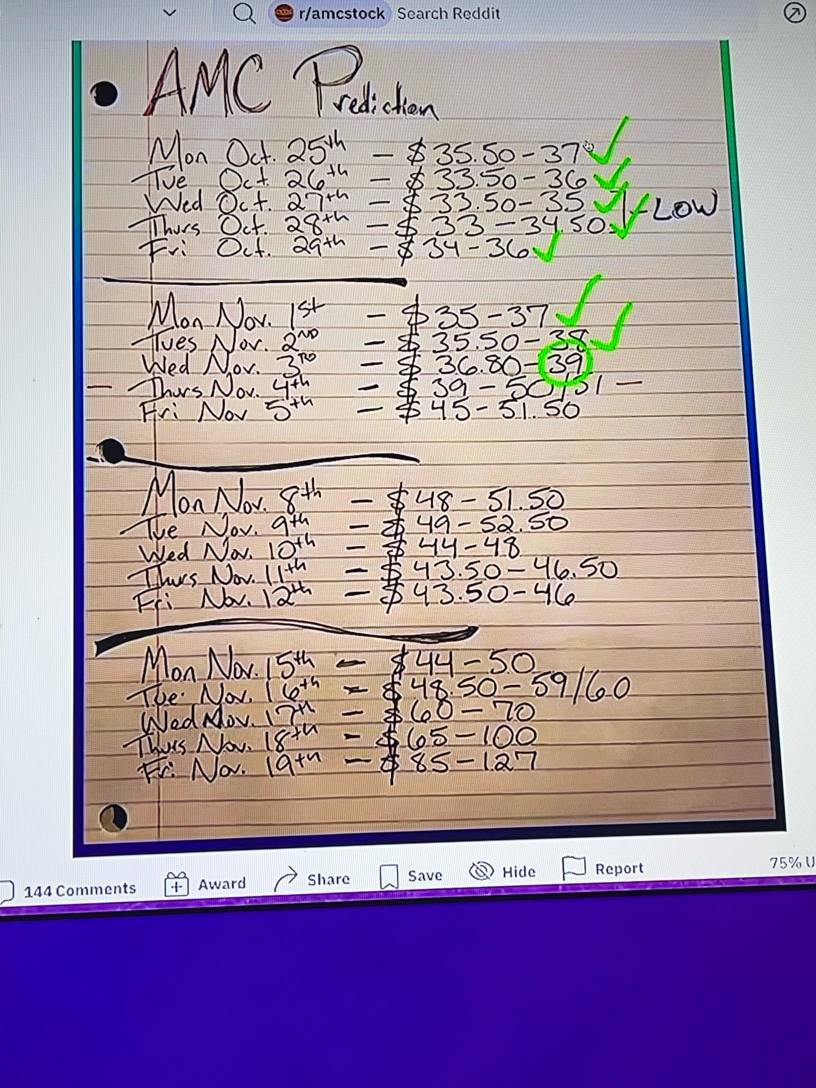 r/amcstock Search Reddit
AMC Prediction
Mon Oct. 25th - $35.50-37
Tue Oct. 26th - $33.50-36
Wed Oct. 27th - $33.50-35
LOW
Thurs Oct. 28th - $33-34.50
Fri Oct. 29th - $34-36
Mon Nov. 1st - $35-37
Tues Nov. 2ND - $35.50-38
Wed Nov. 3RD - $36.80-39
- Thurs Nov. 4th - $39-50/51 -
Fri Nov 5th - $45-51.50
Mon Nov. 8th - $48-51.50
Tue Nov. 9th - $49-52.50
Wed Nov. 10th - $44-48
Thurs Nov. 11th - $43.50-46.50
Fri Nov. 12th - $43.50-46
Mon Nov. 15th - $44-50
Tue. Nov. 16th - $48.50-59/60
Wed Nov. 17th - $60-70
Thurs Nov. 18th - $65-100
Fri. Nov. 19th - $85-127
144 Comments Award Share Save Hide Report 75% U